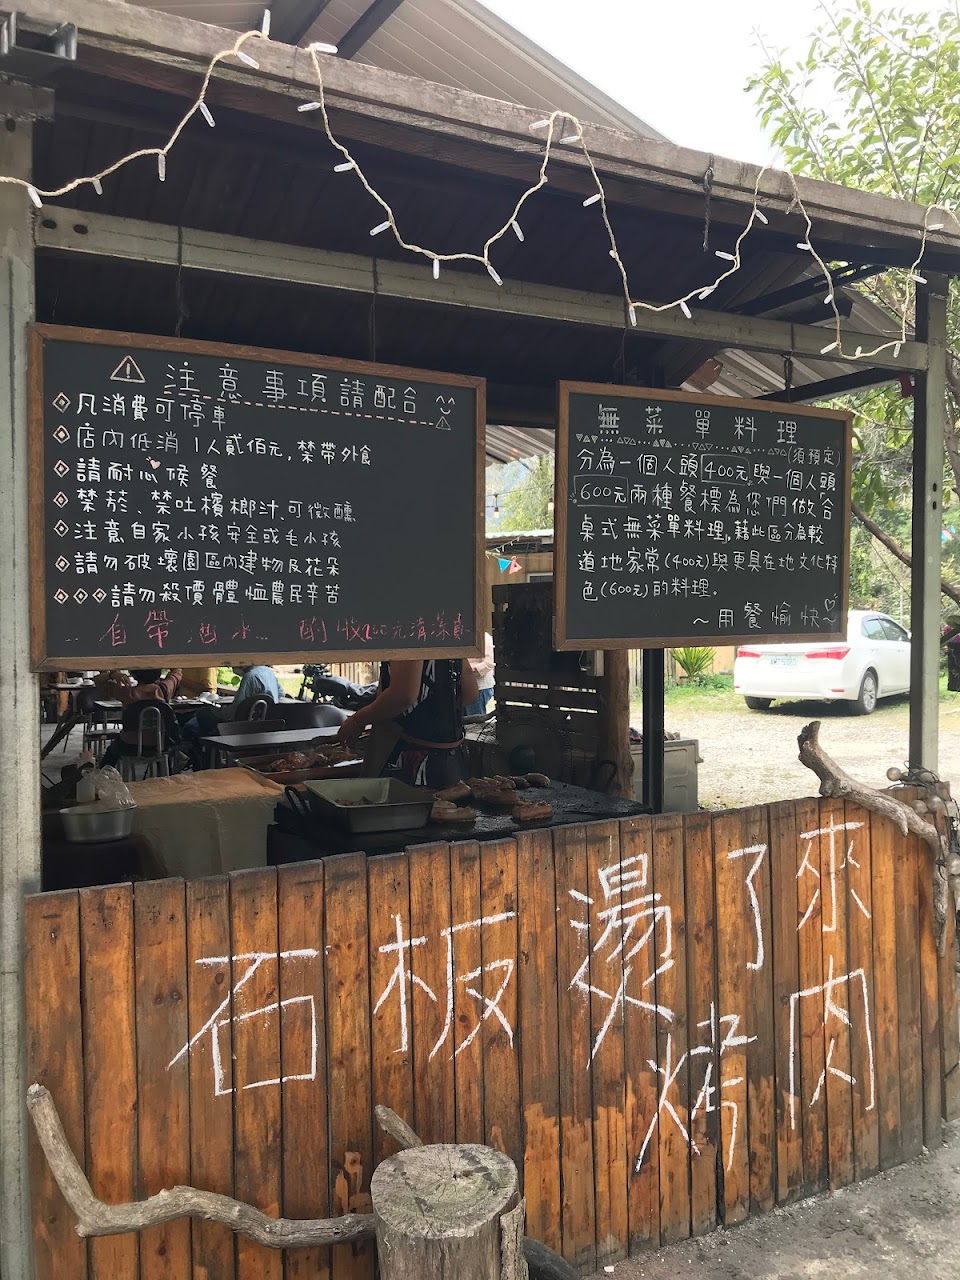 注意事項請配合
凡消費可停車
店內低消1人貳佰元,禁帶外食
請耐心候餐
禁菸、禁吐檳榔汁、可微醺
注意自家小孩安全或毛小孩
請勿破壞園區內建物及花朵
請勿殺價體恤農民辛苦
..自帶酒水... 酌收200元清潔費
無菜單料理
(須預定)
分為一個人頭400元與一個人頭
600元兩種餐標為您們做合
桌式無菜單料理,藉此區分為較
道地家常(400元)與更具在地文化特
色(600元)的料理.
~用餐愉快~
石板燙了來
烤肉